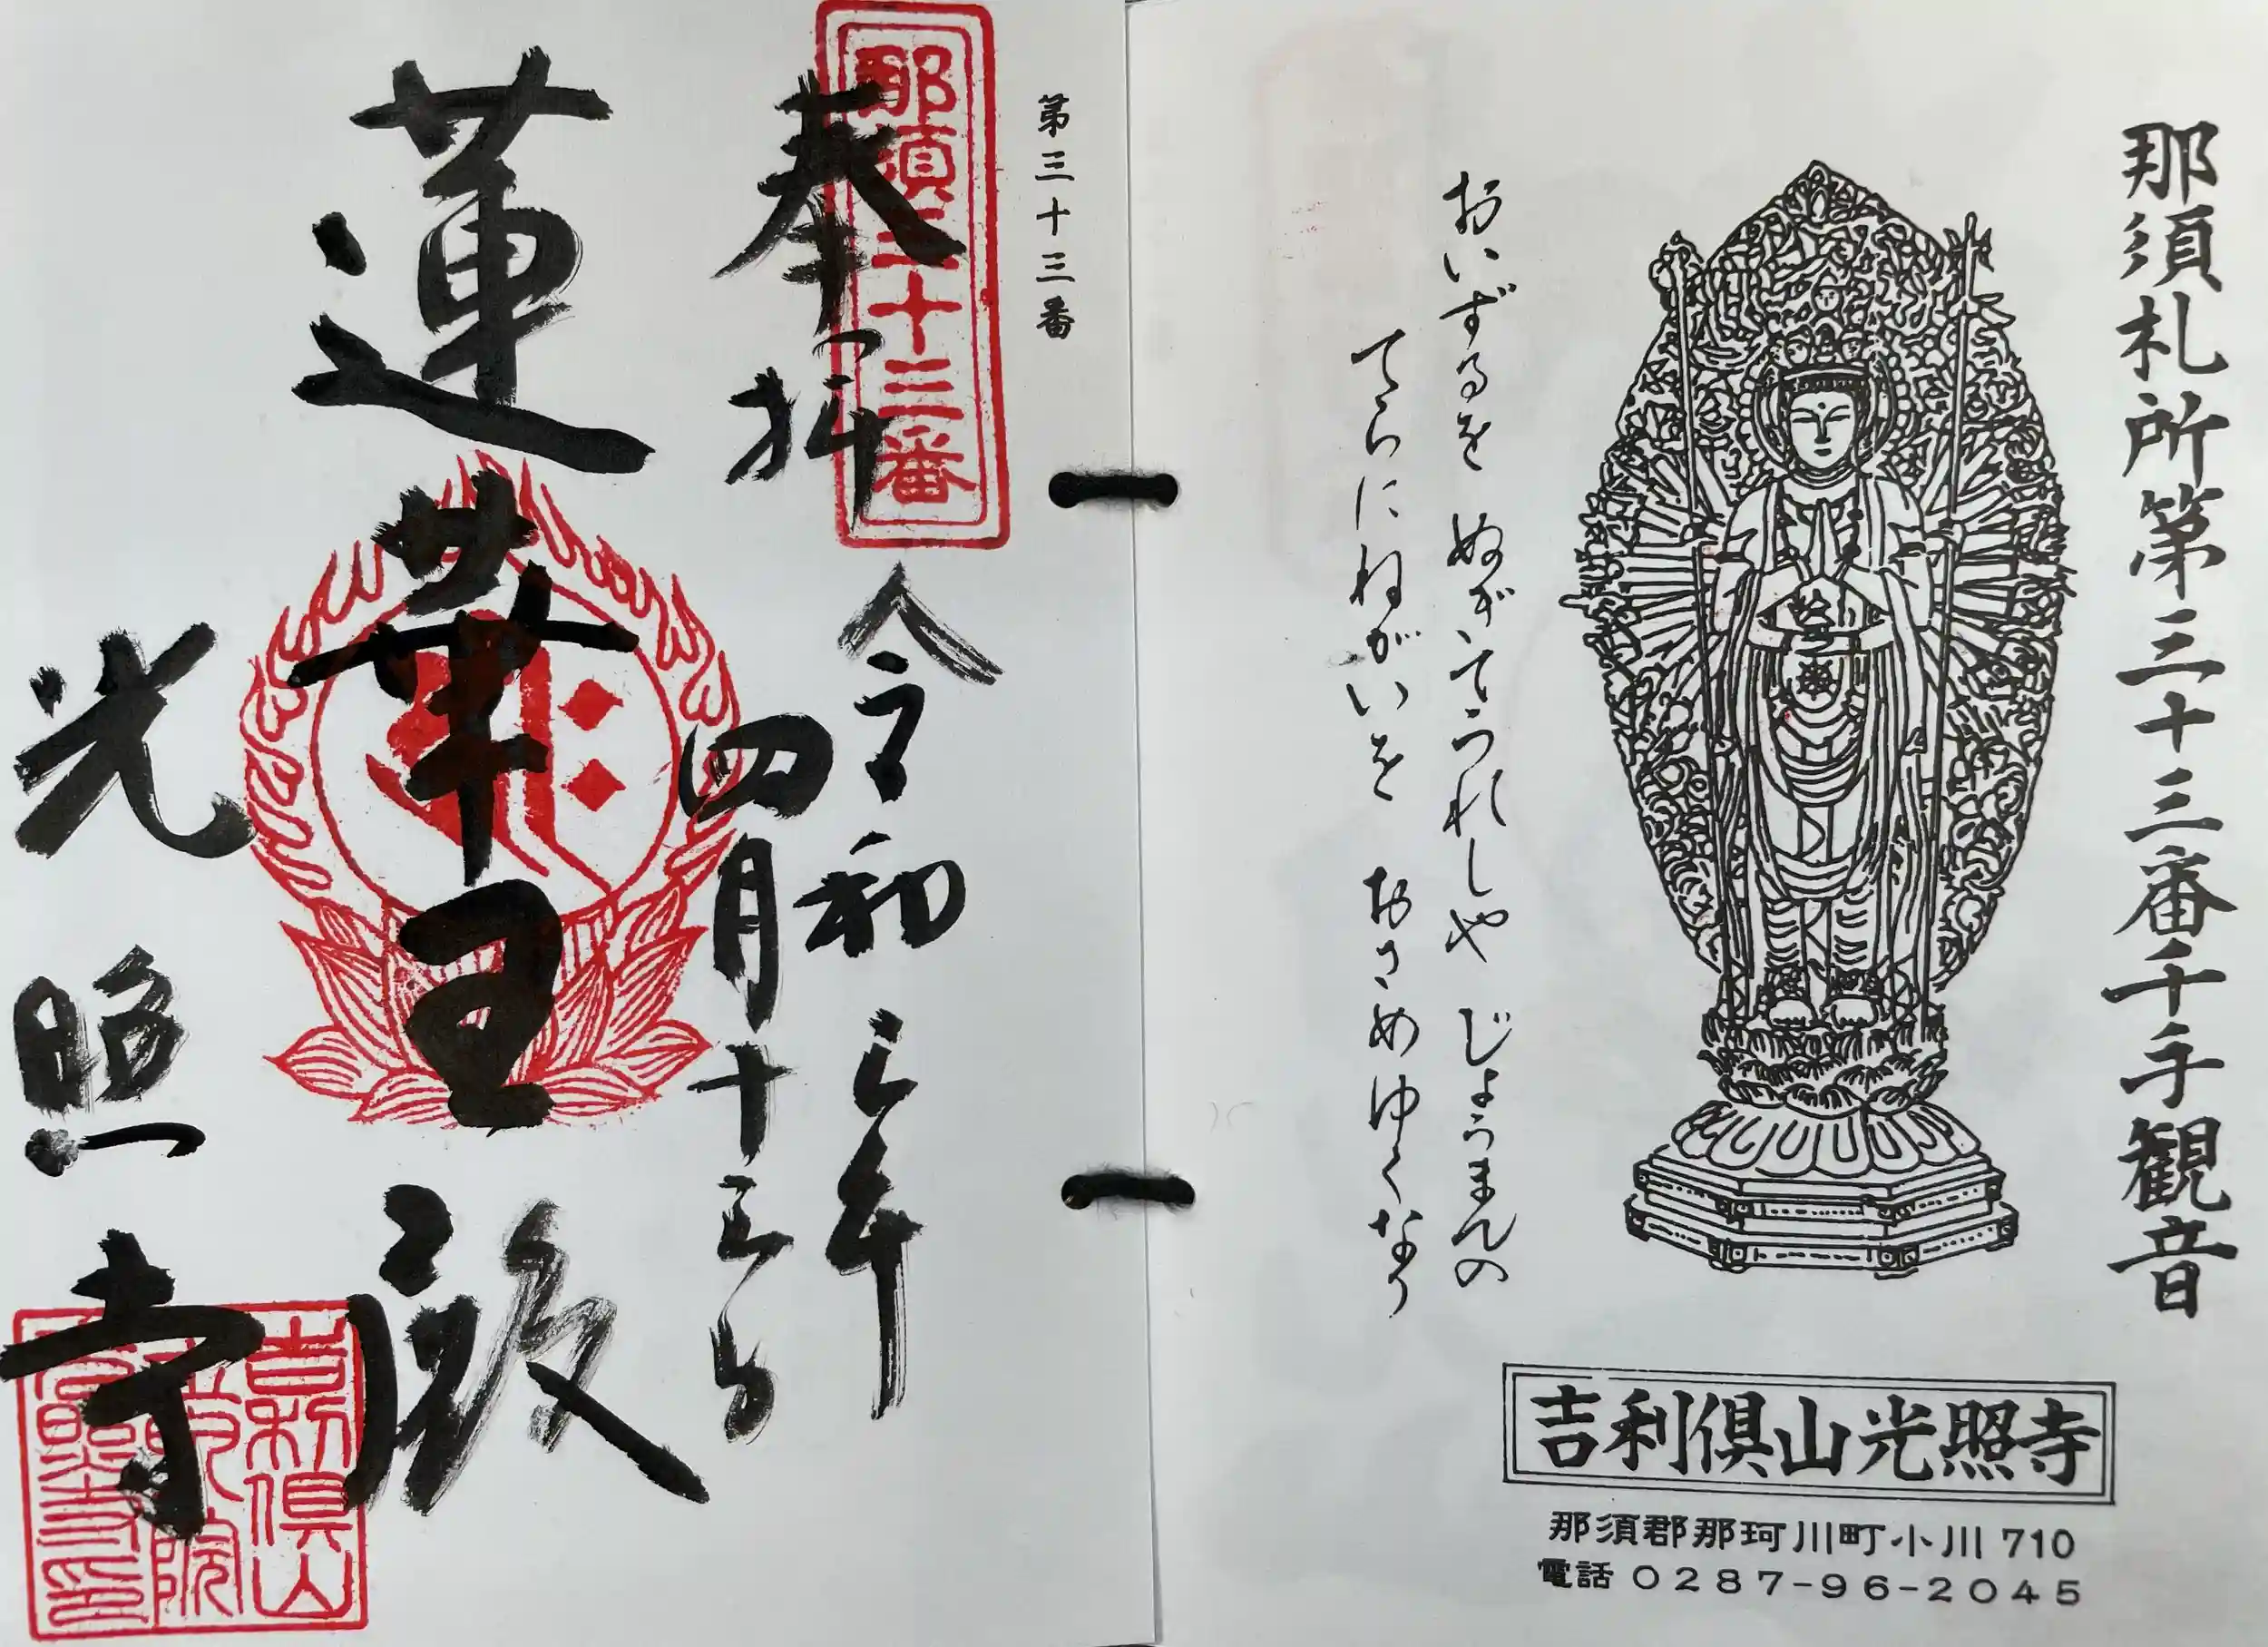 那須札所第三十三番千手観音
おいずるを ぬぎてうれしや じょうまんの
てらにねがいを おさめゆくなり
吉利倶山光照寺
那須郡那珂川町小川710
電話 0287-96-2045
第三十三番
那須三十三番
奉拝
令和 年
四月十三日
蓮華王殿
光照寺
吉利倶山
院
光照寺印